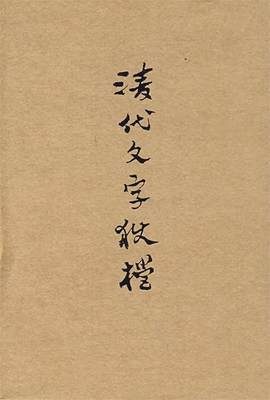 清代文字狱档